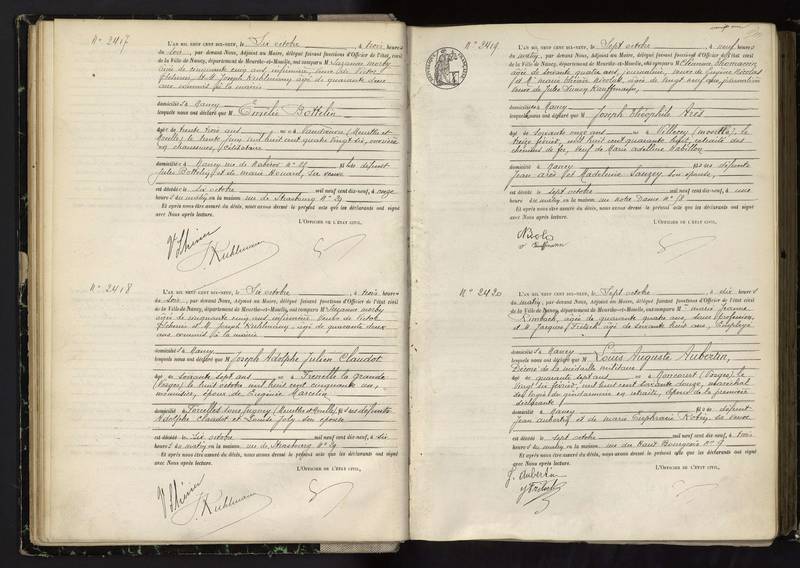 N° 2417
L'AN MIL NEUF CENT DIX-NEUF, le Six octobre, à trois heures
du soir, par devant Nous, Adjoint au Maire, délégué faisant fonctions d'Officier de l'état civil
de la Ville de Nancy, département de Meurthe-et-Moselle, ont comparu M Suzanne
âgée de cinquante cinq ans infirmière, Victor
et M. Joseph Kuhlmann âgé de quarante deux
ans à la mairie
domiciliés à Nancy
lesquels nous ont déclaré que M Emélie Bottelin
âgée de trente trois ans né à Vandœuvre (Meurthe et
Moselle), le trente juin mil huit cent quatre vingt six, ouvrière
en chaussures, Célibataire
domiciliée à Nancy rue de N° 29 fille des défunt
Jules Bottelin et de Marie Houard, sa veuve
est décédée le Six octobre mil neuf cent dix-neuf, à onze
heures du matin, en la maison rue de Strasbourg N° 29
Et après nous être assuré du décès, nous avons dressé le présent acte que les déclarants ont signé
avec Nous après lecture.
L'OFFICIER DE L'ÉTAT CIVIL,
J. Kuhlmann
N° 2418
L'AN MIL NEUF CENT DIX-NEUF, le Six octobre, à trois heures
du soir, par devant Nous, Adjoint au Maire, délégué faisant fonctions d'Officier de l'état civil
de la Ville de Nancy, département de Meurthe-et-Moselle, ont comparu M Suzanne
âgée de cinquante cinq ans infirmière Veuve de Victor
et M. Joseph Kuhlmann âgé de quarante deux
ans à la mairie
domiciliés à Nancy
lesquels nous ont déclaré que M Joseph Adolphe Julien Claudot
âgé de soixante sept ans né à Frenelle la grande
(Vosges) le huit octobre mil huit cent cinquante un,
époux de Eugénie Marcelin
domicilié à (Meurthe et Moselle) fils des défunts
Adolphe Claudot et Louise Joly son épouse
est décédé le Six octobre mil neuf cent dix-neuf, à dix
heures du matin, en la maison rue de Strasbourg N° 29
Et après nous être assuré du décès, nous avons dressé le présent acte que les déclarants ont signé
avec Nous après lecture.
L'OFFICIER DE L'ÉTAT CIVIL,
J. Kuhlmann
N° 2419
L'AN MIL NEUF CENT DIX-NEUF, le Sept octobre, à neuf heures
du matin, par devant Nous, Adjoint au Maire, délégué faisant fonctions d'Officier de l'état civil
de la Ville de Nancy, département de Meurthe-et-Moselle, ont comparu M
âgée de soixante quatre ans, journalière, veuve de Eugène Nicolas
et Mme Nicolas, âgée de vingt neuf ans, journalière
veuve de Jules Kauffmann,
domiciliées à Nancy
lesquels nous ont déclaré que M Joseph Théophile Arès
âgé de soixante onze ans né à Villecey (Moselle), le
treize février, mil huit cent quarante huit, retraité des
chemins de fer, veuf de Marie Mabillon
domicilié à Nancy fils des défunts
Jean Arès et Madeleine Sauzey, son épouse,
est décédé le sept octobre mil neuf cent dix-neuf, à une
heure du matin, en la maison rue Notre Dame N° 58
Et après nous être assuré du décès, nous avons dressé le présent acte que les déclarants ont signé
avec Nous après lecture.
L'OFFICIER DE L'ÉTAT CIVIL,
Kauffmann
N° 2420
L'AN MIL NEUF CENT DIX-NEUF, le Sept octobre, à dix heures
du matin, par devant Nous, Adjoint au Maire, délégué faisant fonctions d'Officier de l'état civil
de la Ville de Nancy, département de Meurthe-et-Moselle, ont comparu M Marie Jeanne
âgée de quarante quatre ans, sans profession,
et M Jacques Fritsch âgé de soixante trois ans, Employé
domiciliés à Nancy
lesquels nous ont déclaré que M Louis Auguste Aubertin,
Décoré de la médaille militaire
âgé de quarante sept ans né à (Vosges) le
vingt six février, mil huit cent soixante douze, maréchal
des logis de gendarmerie en retraite, époux de la première
déclarante
domicilié à Nancy fils de défunt
Jean Aubertin et de Marie Euphrasie sa veuve
est décédé le sept octobre mil neuf cent dix-neuf, à trois
heures du matin, en la maison rue du Haut Bourgeois N° 9
Et après nous être assuré du décès, nous avons dressé le présent acte que les déclarants ont signé
avec Nous après lecture.
L'OFFICIER DE L'ÉTAT CIVIL,
J. Aubertin
J Fritsch